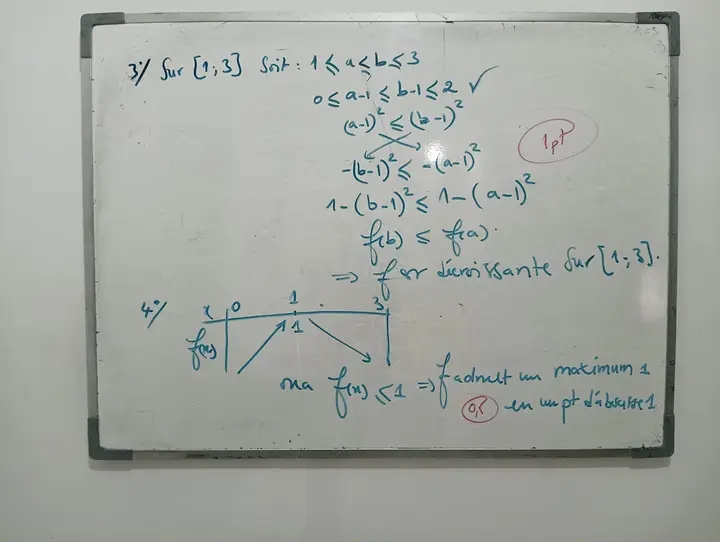 3°/ Sur [1;3] Soit : 1 ⩽ a ⩽ b ⩽ 3
0 ⩽ a-1 ⩽ b-1 ⩽ 2 ✓
(a-1)² ⩽ (b-1)²
1pt
-(b-1)² ⩽ -(a-1)²
1-(b-1)² ⩽ 1-(a-1)²
f(b) ⩽ f(a).
⇒ f est décroissante sur [1;3].
4°/ x 0 1 3
f(x) 1
ona f(x) ⩽ 1 ⇒ f admet un maximum 1
0,5 en un pt d'abscisse 1